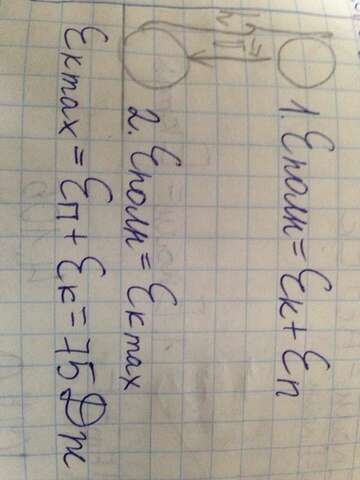 1. Eполн = Eк + Eп
2. Eполн = Eк max
Eк max = Eп + Eк = 75 Дж